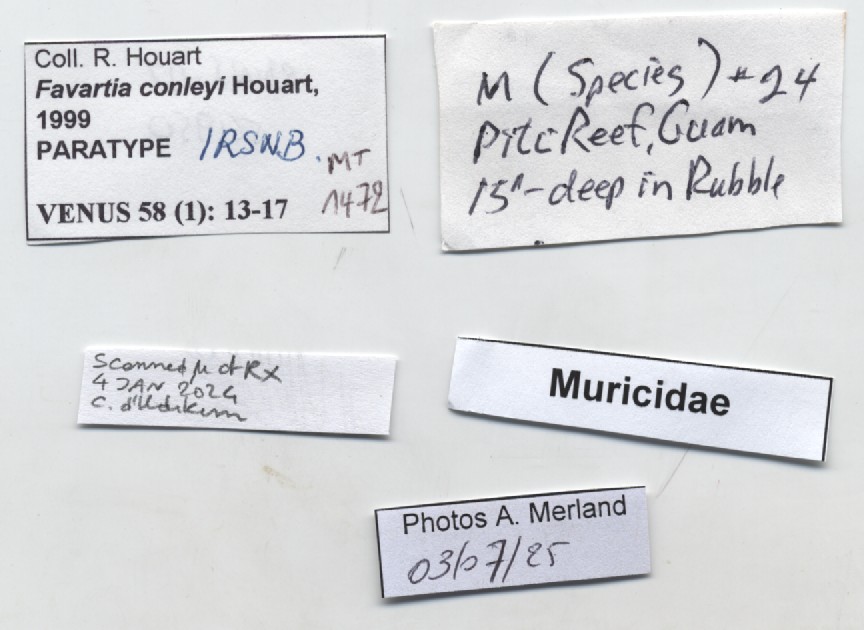 Coll. R. Houart
Favartia conleyi Houart,
1999
PARATYPE IRSNB. MT
VENUS 58 (1): 13-17 1472
M (Species) #24
Piti Reef, Guam
15"-deep in Rubble
Scanned µ ct RX
4 JAN 2024
C. d'Udekem
Muricidae
Photos A. Merland
03/07/25